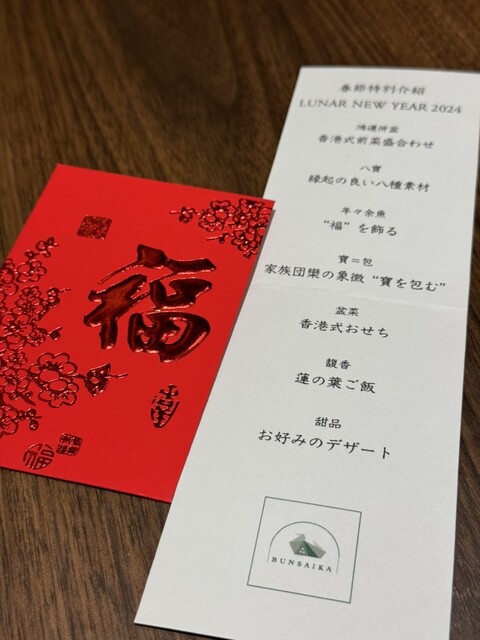 春節特別介紹
LUNAR NEW YEAR 2024
鴻運併盆
香港式前菜盛合わせ
八寶
縁起の良い八種素材
年々余魚
"福" を飾る
寶=包
家族団欒の象徴 "寶を包む"
盆菜
香港式おせち
馥香
蓮の葉ご飯
甜品
お好みのデザート
BUNSAIKA
福
福